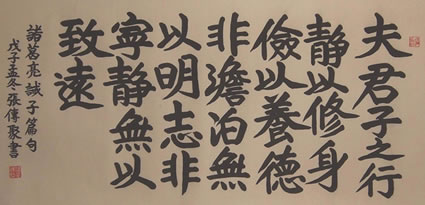 夫君子之行
静以修身
儉以養德
非澹泊無
以明志非
寧静無以
致遠
諸葛亮誡子篇句
戊子孟冬張傳聚書